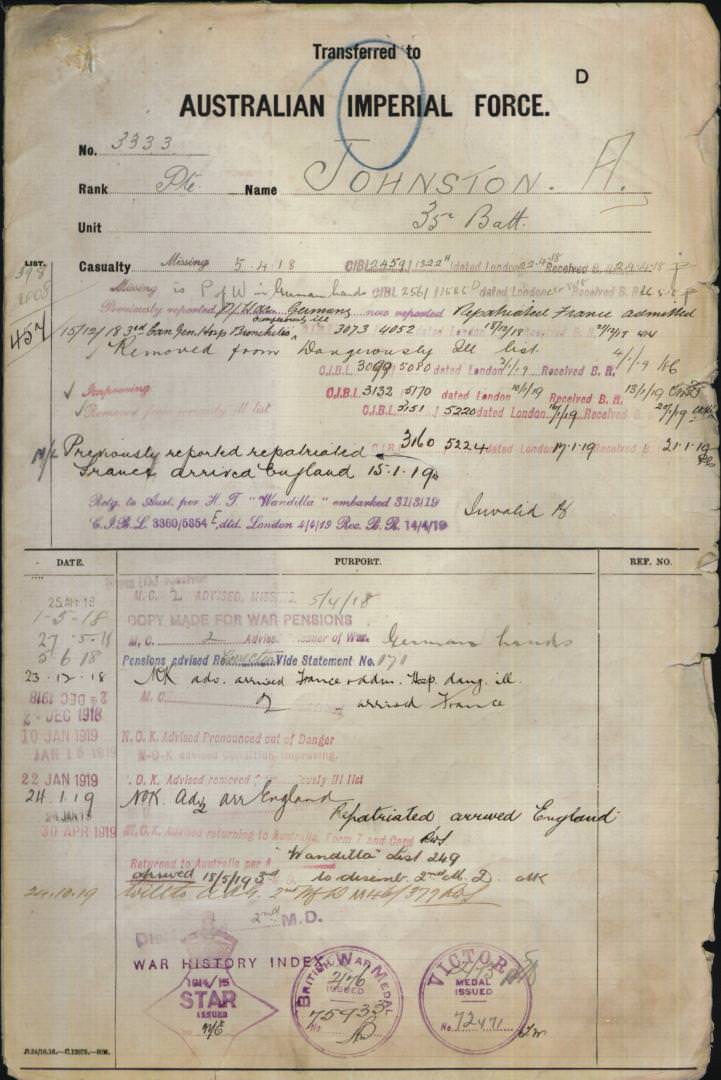 Transferred to
D
AUSTRALIAN IMPERIAL FORCE.
No. 3333
Rank Pte. Name JOHNSTON. A.
Unit 35th Batt.
LIST.
Casualty Missing 5.4.18 C.I.B.L. 2459 1322 dated London 22-4-18 Received B. R. 24-4-18
Missing is P of W in German hands C.I.B.L. 2561 dated London
457
Previously reported P/W Germany now reported Repatriated France admitted
15/12/18 3rd Can. Gen. Hosp Bronchitis dangerously ill 3073 4052 dated London 18/12/18 Received B. R.
Removed from Dangerously Ill list.
C.I.B.L. 3099 5080 dated London 2/1/19 Received B. R. 4/1/19
Improving C.I.B.L. 3132 5170 dated London 10/1/19 Received B. R. 13/1/19
Removed from seriously ill list C.I.B.L. 3151 5220 dated London Received B.
Previously reported repatriated C.I.B.L. 3160 5224 dated London 17.1.19 Received B. 21.1.19
France arrived England 15.1.19
Retg. to Aust. per H. T "Wandilla" embarked 31/3/19 Invalid
C.I.B.L. 3360/5854 E, dtd. London 4/4/19 Rec. B. R. 14/4/19
DATE. PURPORT. REF. NO.
M. C. 2 ADVISED, MISSING 5/4/18
1-5-18 COPY MADE FOR WAR PENSIONS
27-5-18 M. C. 2 Advised Prisoner of War. German hands
5-6-18 Pensions advised Vide Statement No. 171
23-12-18 NOK adv. arrived France & adm. Hosp. dang. ill.
24 DEC 1918 M. C. 2 arrived France
2 DEC 1918
10 JAN 1919 N.O.K. Advised Pronounced out of Danger
JAN 15 1919 N-O-K advised Condition Improving.
22 JAN 1919 N.O.K Advised removed ill list
24.1.19 NOK. Adv arr England
Repatriated arrived England
30 APR 1919 N.O.K. Advised returning to Australia, Form 7 and Cond
Returned to Australia per "Wandilla" List 249
arrived 15/5/19 3rd to disemb. 2nd M. D.
24.10.19
2nd M.D.
WAR HISTORY INDEX
1914/15
STAR
ISSUED
BRITISH WAR MEDAL
ISSUED
No 75933
VICTORY
MEDAL
ISSUED
No. 72471